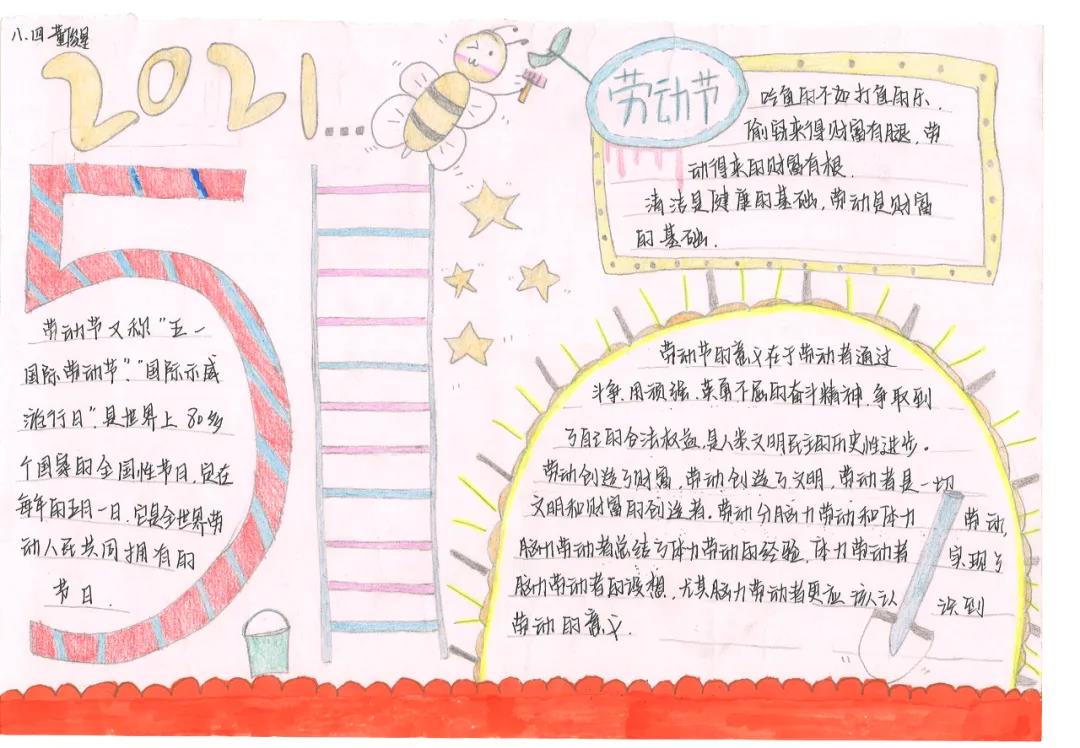 八.四 董俊星
2021...
劳动节
吃鱼的不如打鱼的乐.
偷窃来得财富有腿,劳
动得来的财富有根.
清洁是健康的基础,劳动是财富
的基础.
5
劳动节又称“五一
国际劳动节”.“国际示威
游行日”.是世界上 80多
个国家的全国性节日.定在
每年的五月一日.它是全世界劳
动人民共同拥有的
节日.
劳动节的意义在于劳动者通过
斗争.用顽强、英勇不屈的奋斗精神.争取到
了自己的合法权益,是人类文明民主的历史性进步。
劳动创造了财富,劳动创造了文明,劳动者是一切
文明和财富的创造者.劳动分脑力劳动和体力 劳动,
脑力劳动者总结了体力劳动的经验.体力劳动者 实现了
脑力劳动者的设想.尤其脑力劳动者更应 该认 识到
劳动的意义.